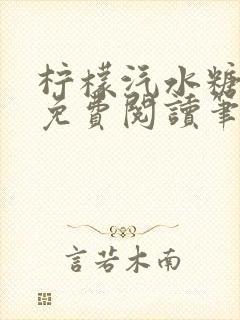 柠檬汽水糖
免費閱讀筆
言若木南